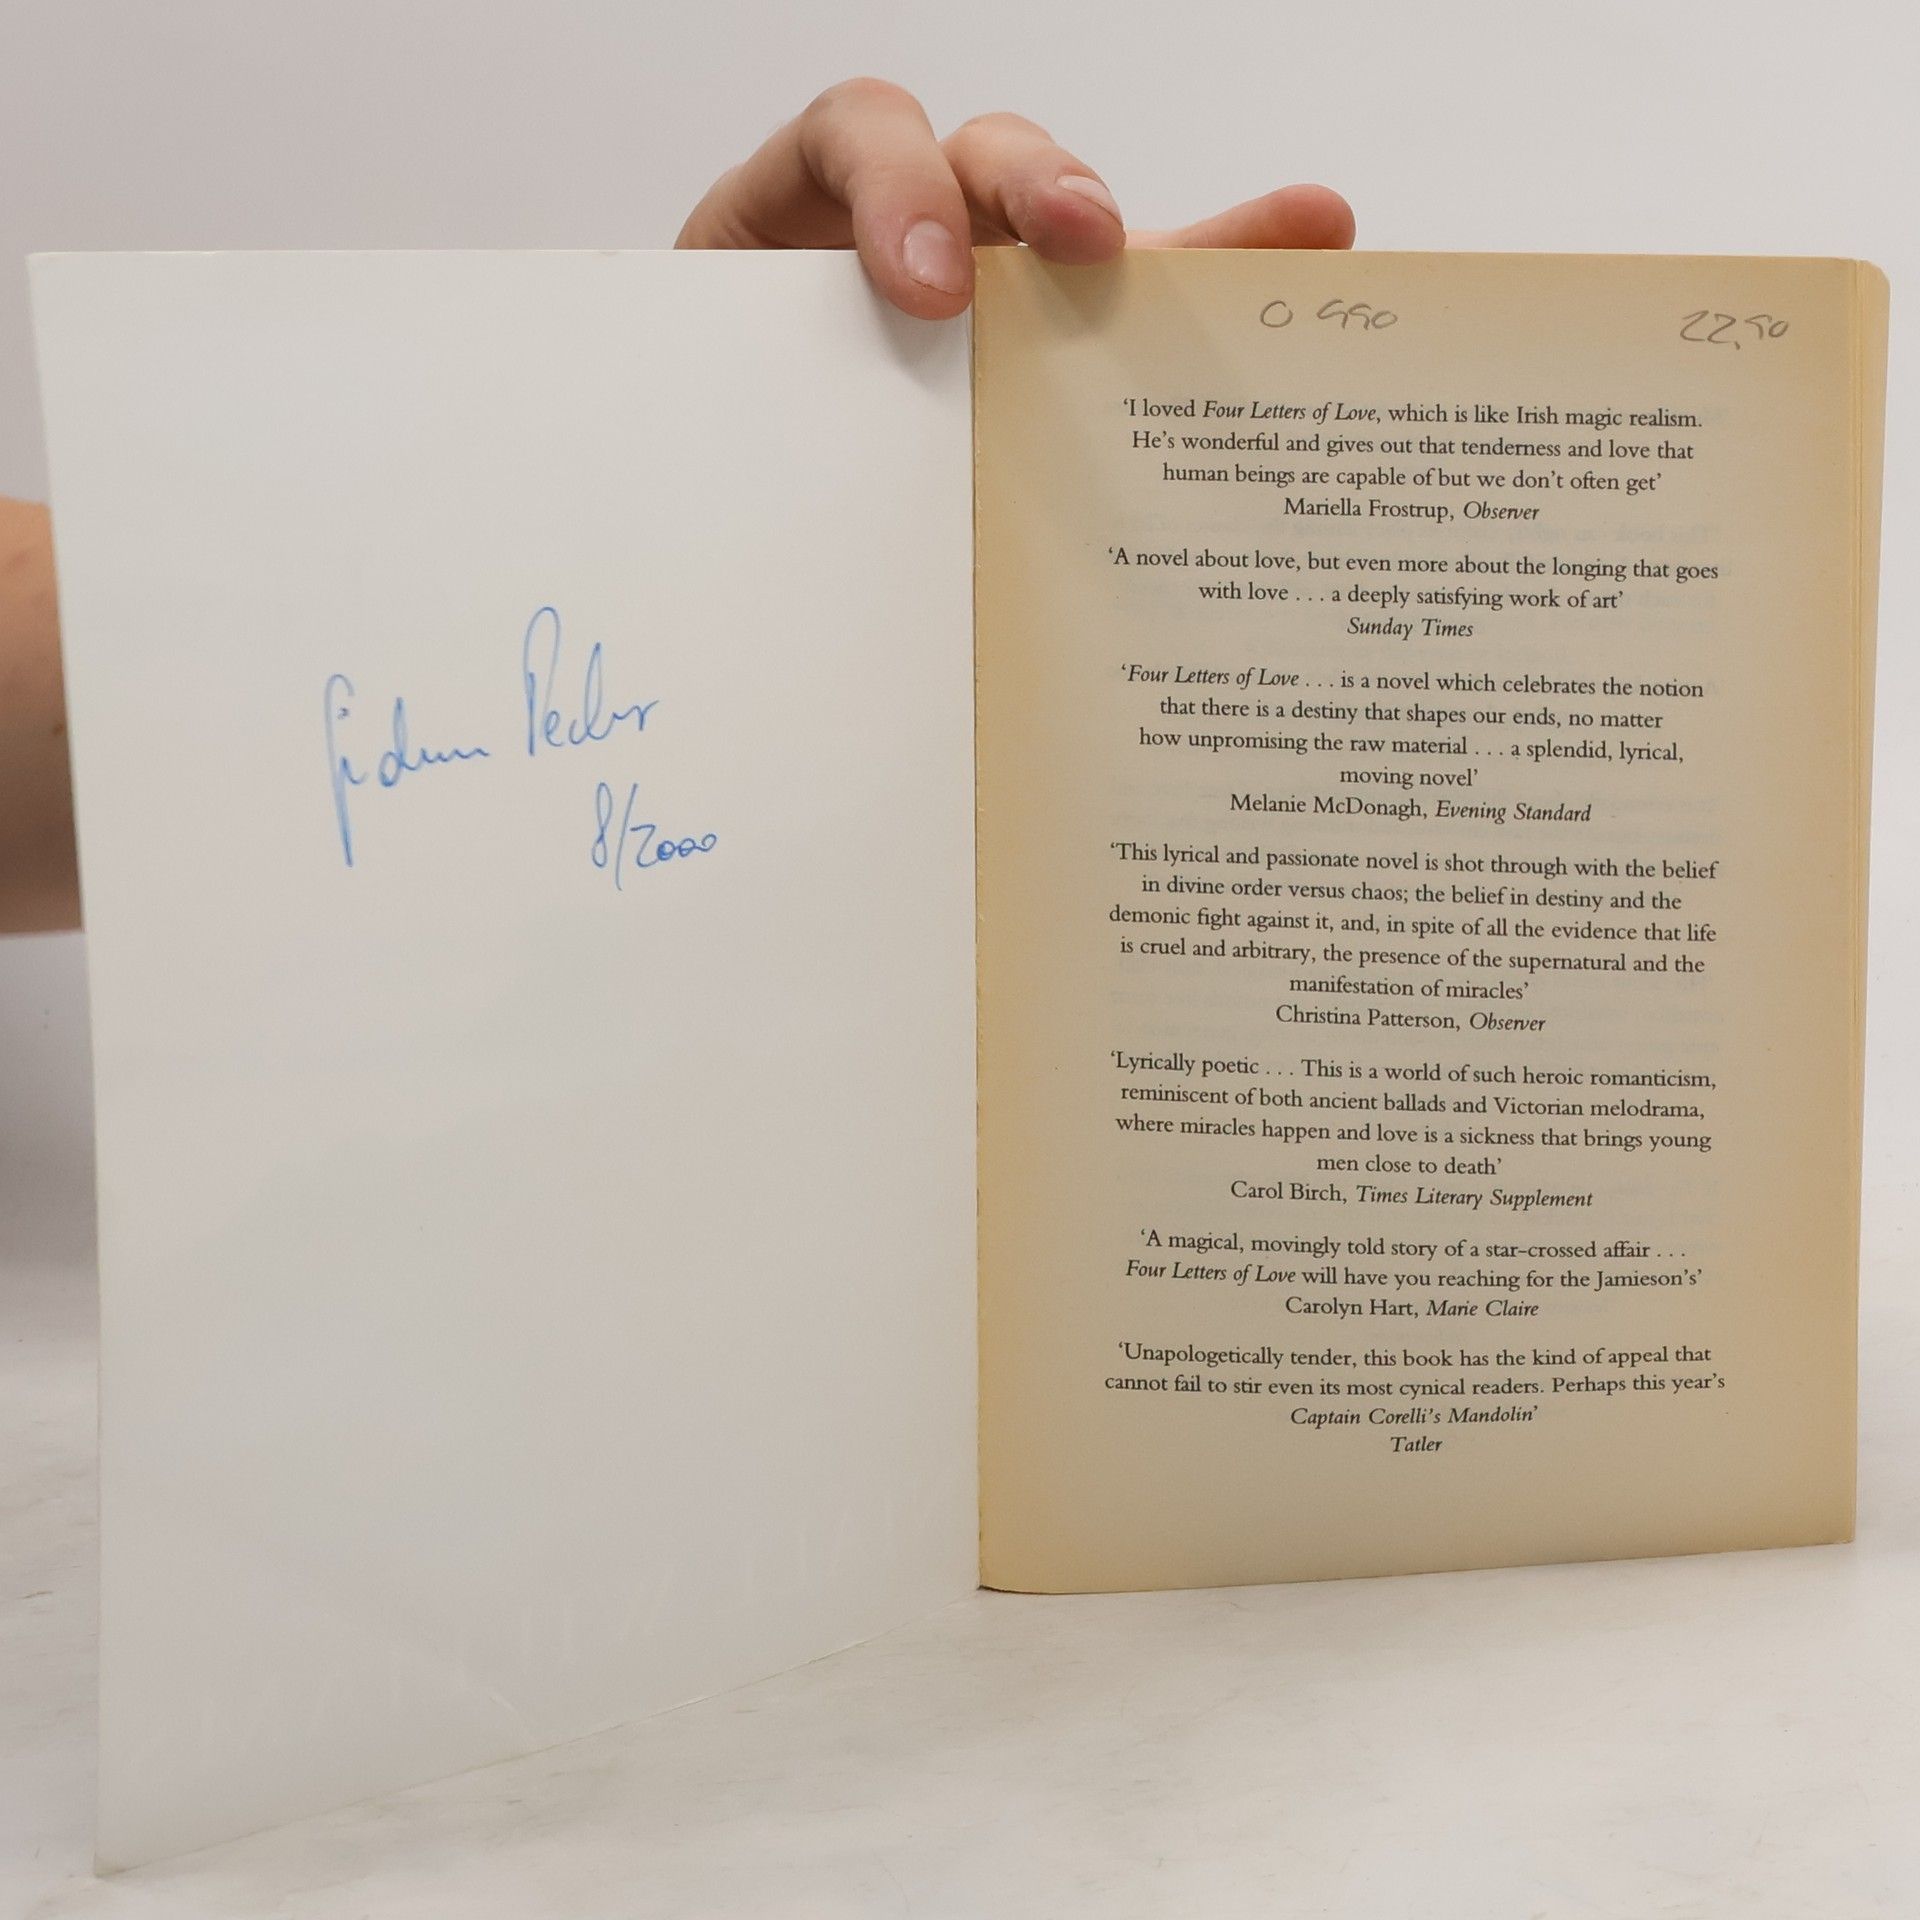 8/2000
0 990
22,90
‘I loved Four Letters of Love, which is like Irish magic realism.
He’s wonderful and gives out that tenderness and love that
human beings are capable of but we don’t often get’
Mariella Frostrup, Observer
‘A novel about love, but even more about the longing that goes
with love . . . a deeply satisfying work of art’
Sunday Times
‘Four Letters of Love . . . is a novel which celebrates the notion
that there is a destiny that shapes our ends, no matter
how unpromising the raw material . . . a splendid, lyrical,
moving novel’
Melanie McDonagh, Evening Standard
‘This lyrical and passionate novel is shot through with the belief
in divine order versus chaos; the belief in destiny and the
demonic fight against it, and, in spite of all the evidence that life
is cruel and arbitrary, the presence of the supernatural and the
manifestation of miracles’
Christina Patterson, Observer
‘Lyrically poetic . . . This is a world of such heroic romanticism,
reminiscent of both ancient ballads and Victorian melodrama,
where miracles happen and love is a sickness that brings young
men close to death’
Carol Birch, Times Literary Supplement
‘A magical, movingly told story of a star-crossed affair . . .
Four Letters of Love will have you reaching for the Jamieson’s’
Carolyn Hart, Marie Claire
‘Unapologetically tender, this book has the kind of appeal that
cannot fail to stir even its most cynical readers. Perhaps this year’s
Captain Corelli’s Mandolin’
Tatler